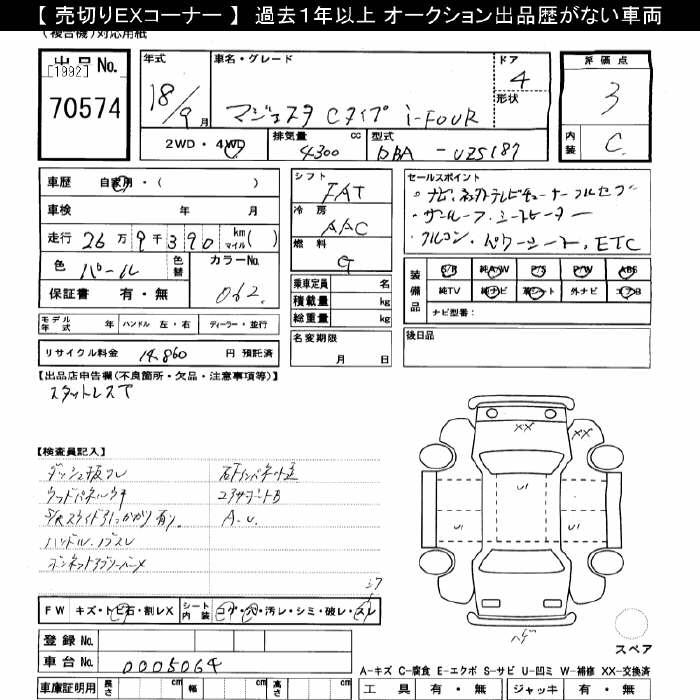 【 売切りEXコーナー 】 過去1年以上 オークション出品歴がない車両
(複合機)対応用紙
出品No.
[1992]
70574
年式
18/9月
車名・グレード
マジェスタ Cタイプ i-FOUR
ドア
4
形状
2WD・4WD
排気量 cc
4300
型式
DBA - UZS187
評価点
3
内装
C
車歴 自家用・( )
車検 年 月
走行 26万9千390 km マイル ( )
色 パール
色替
カラーNo.
062
保証書 有・無
モデル年式 年 ハンドル 左・右 ディーラー・並行
リサイクル料金 14,860 円 預託済
シフト
FAT
冷房
AAC
燃料
G
乗車定員 名
積載量 kg
総重量 kg
名変期限
月 日
セールスポイント
サンルーフ、シートヒーター
フルコン、パワーシート、ETC
装備品
S/R 純A/W P/S P/W ABS
純TV 純ナビ 革シート 外ナビ エアB
ナビ型番:
後日品
【出品店申告欄(不良箇所・欠品・注意事項等)】
スタットレスT
【検査員記入】
A.U.
ハンドル、ノブスレ
XX
U1
U1
U1
ハゲ
シワ
FW キズ・トビ石・割レX
シート内装 コゲ・穴・汚レ・シミ・破レ・スレ
登録No.
車台No. 0005064
車庫証明用 長さ cm 幅 cm 高さ cm
スペア
A-キズ C-腐食 E-エクボ S-サビ U-凹ミ W-補修 XX-交換済
工具 有・無 ジャッキ 有・無